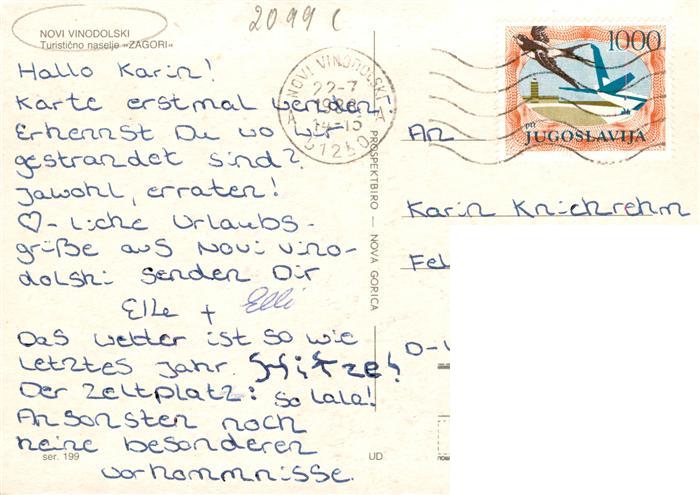 2099 C
NOVI VINODOLSKI
Turistično naselje »ZAGORI«
Hallo Karin!
Karte erstmal wenden!
Erkennst Du wo wir
gestrandet sind?
Jawohl, erraten!
♡-liche Urlaubs-
grüße aus Novi Vino-
dolski senden Dir
Elke + Elli
Das Wetter ist so wie
letztes Jahr. Hitze!
Der Zeltplatz: so lala!
Ansonsten noch
keine besonderen
Vorkommnisse.
ser. 199
UD
PROSPEKTBIRO — NOVA GORICA
NOVI VINODOLSKI
22-7
14-15
51250
1000
JUGOSLAVIJA
An
Karin Knickrehm
Fel
D-